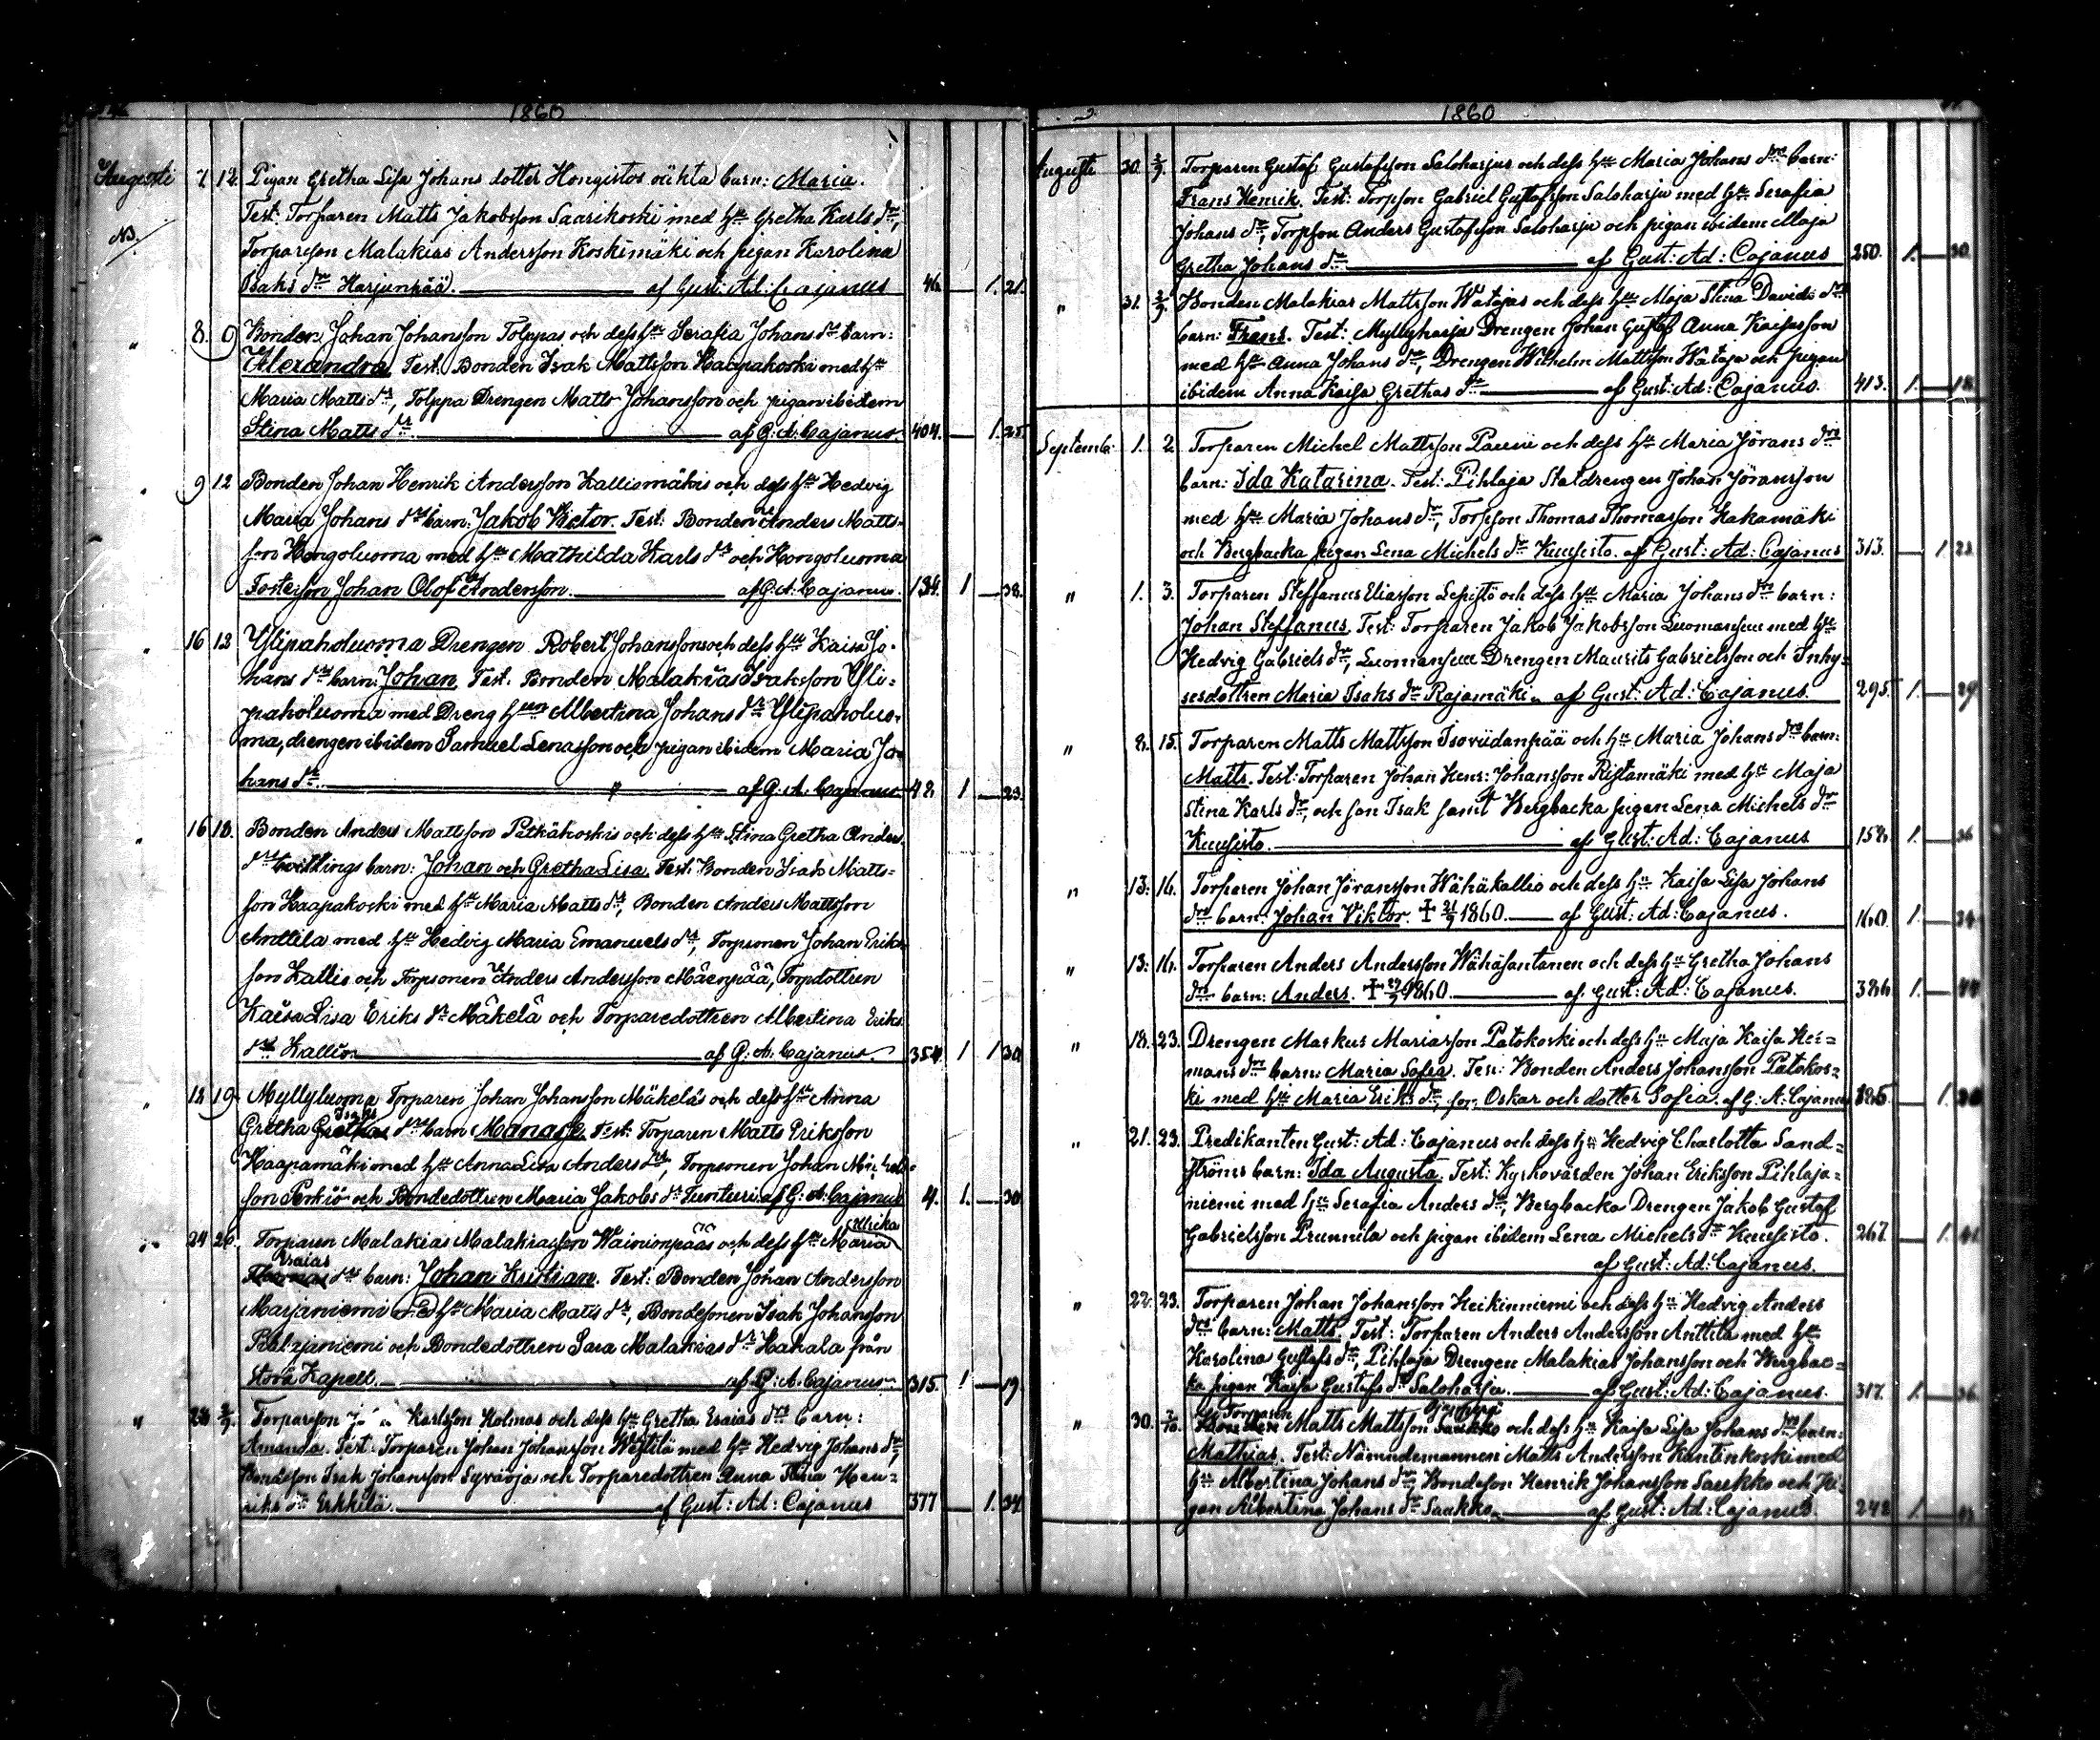 1860
Augusti 7 12. Pigan Gretha Lisa Johans dotter Hongistos oäkta barn: Maria.
Test: Torparen Matts Jakobsson Saarikoski med hu Gretha Karls dr,
NB. Torparson Malakias Andersson Koskimäki och pigan Karolina
Isaks dr Harjunpää. af Gust: Ad: Cajanus 46. 1. 21.
" 8. 9 Bonden Johan Johansson Tolppas och dess hu Serafia Johans drs barn:
Alexandra. Test. Bonden Isak Mattsson Haapakoski med hu
Maria Matts dr, Tolppa Drengen Matts Johansson och pigan ibidem
Stina Matts dr. af G. A. Cajanus. 404. 1. 25.
" 9 12 Bonden Johan Henrik Andersson Kalliomäkis och dess hu Hedvig
Maria Johans drs barn: Jakob Victor. Test: Bonden Anders Matts-
son Hongoluoma med hu Mathilda Karls dr och Hongoluoma
Fosterson Johan Olof Andersson. af G. A. Cajanus. 134. 1 38.
" 16 18 Ylipaholuoma Drengen Robert Johanssons och dess hu Kaisa Jo-
hans drs barn: Johan. Test. Bonden Malakias Isaksson Yli-
paholuoma med Dreng hun Albertina Johans dr Ylipaholuo-
ma, drengen ibidem Samuel Lenasson och pigan ibidem Maria Jo-
hans dr. af G. A. Cajanus 42 1 23.
" 16 18. Bonden Anders Mattsson Pitkäkoskis och dess hu Stina Gretha Anders
drs tvillingsbarn: Johan och Gretha Lisa. Test: Bonden Isak Matts-
son Haapakoski med hu Maria Matts dr, Bonden Anders Mattsson
Anttila med hu Hedvig Maria Emanuels dr, Torpsonen Johan Eriks-
son Kallio och Torpsonen Anders Andersson Mäenpää, Torpdottren
Kaisa Lisa Eriks dr Mäkelä och Torparedottren Albertina Eriks
dr Kallio. af G. A. Cajanus. 354 1 1 30
" 18 19 Myllyluoma Torparen Johan Johansson Mäkeläs och dess hu Anna
Isaks
Gretha Grethas drs barn Manase. Test: Torparen Matts Eriksson
Haapamäki med hu Anna Lisa Anders dr, Torpsonen Johan Michels-
son Perkiö och Bondedottren Maria Jakobs dr Luntturi af G. A. Cajanus 4. 1. 30
Ullrika
" 24 26 Torparen Malakias Malakiasson Wainionpääs och dess hu Maria
Esaias
Thomas drs barn: Johan Kristian. Test: Bonden Johan Andersson
Marjaniemi med hu Maria Matts dr, Bondesonen Isak Johansson
Marjaniemi och Bondedottren Sara Malakias dr Hakala från
Storå Kapell. af G. A. Cajanus 315. 1 19.
" 28 2/9. Torparson Karlsson Holmas och dess hu Gretha Esaias drs barn:
Amanda. Test: Torparen Johan Johansson Westilä med hu Hedvig Johans dr,
Bondeson Isak Johansson Syväoja och Torparedottren Anna Stina Hen-
riks dr Erkkilä. af Gust: Ad: Cajanus 377 1. 34.
1860
Augusti 30. 2/9. Torparen Gustaf Gustafsson Saloharjus och dess hu Maria Johans drs barn:
Frans Henrik. Test: Torpson Gabriel Gustafsson Saloharju med hu Serafia
Johans dr, Torpson Anders Gustafsson Saloharju och pigan ibidem Maja
Gretha Johans dr. af Gust: Ad: Cajanus 250. 1. 30.
" 31. 2/9. Bonden Malakias Mattsson Watajas och dess hu Maja Stina Davids drs
barn: Frans. Test: Myllyharju Drengen Johan Gustaf Anna Kaisasson
med hu Anna Johans dr, Drengen Wilhelm Mattsson Wataja och pigan
ibidem Anna Kaisa Grethas dr. af Gust: Ad: Cajanus. 413. 1. 18.
Septemb: 1. 2. Torparen Michel Mattsson Panni och dess hu Maria Jörans drs
barn: Ida Katarina. Test: Pihlaja Statdrengen Johan Jöransson
med hu Maria Johans dr, Torpson Thomas Thomasson Hakamäki
och Bergbacka pigan Lena Michels dr Kuusisto. af Gust: Ad: Cajanus 313. 1
" 1. 3. Torparen Steffanus Eliasson Lepistö och dess hu Maria Johans drs barn:
Johan Steffanus. Test: Torparen Jakob Jakobsson Luomansuu med hu
Hedvig Gabriels dr, Luomansuu Drengen Maurits Gabrielsson och Inhy-
sesdottren Maria Isaks dr Rajamäki. af Gust: Ad: Cajanus. 295. 1. 29.
" 8. 15. Torparen Matts Mattsson Isoviidanpää och hu Maria Johans drs barn:
Matts. Test: Torparen Johan Henr: Johansson Ristamäki med hu Maja
Stina Karls dr, och son Isak samt Bergbacka pigan Lena Michels dr
Kuusisto. af Gust: Ad: Cajanus 158. 1. 36
" 13. 16. Torparen Johan Jöransson Wähäkallio och dess hu Kaisa Lisa Johans
drs barn: Johan Viktor. † 21/9 1860. af Gust: Ad: Cajanus. 160. 1.
" 13. 16. Torparen Anders Andersson Wähäsantanen och dess hu Gretha Johans
drs barn: Anders. † 1860. af Gust: Ad: Cajanus. 386. 1. 44
" 18. 23. Drengen Markus Mariasson Patokoski och dess hu Maja Kaisa Her-
mans drs barn: Maria Sofia. Test: Bonden Anders Johansson Patokos-
ki med hu Maria Eriks dr, son Oskar och dotter Sofia. af G. A. Cajanus 1.
" 21. 23. Predikanten Gust: Ad: Cajanus och dess hu Hedvig Charlotta Sand-
ströms barn: Ida Augusta. Test: Kyrkovärden Johan Eriksson Pihlaja-
niemi med hu Serafia Anders dr, Bergbacka Drengen Jakob Gustaf
Gabrielsson Prunnila och pigan ibidem Lena Michels dr Kuusisto. 267. 1. 41
af Gust: Ad: Cajanus.
" 22. 23. Torparen Johan Johansson Heikinniemi och dess hu Hedvig Anders
drs barn: Matts. Test: Torparen Anders Andersson Anttila med hu
Karolina Gustafs dr, Pihlaja Drengen Malakias Johansson och Bergbac-
ka pigan Kaisa Gustafs dr Saloharju. af Gust: Ad: Cajanus. 317. 1. 36
Torparen
" 30. 7/10. Bonden Matts Mattsson Saukko och dess hu Kaisa Lisa Johans drs barn:
Mathias. Test: Nämndemannen Matts Andersson Kantinkoski med
hu Albertina Johans dr, Bondeson Henrik Johansson Saukko och Pi-
gan Albertina Johans dr Saukko. af Gust: Ad: Cajanus. 242 1.